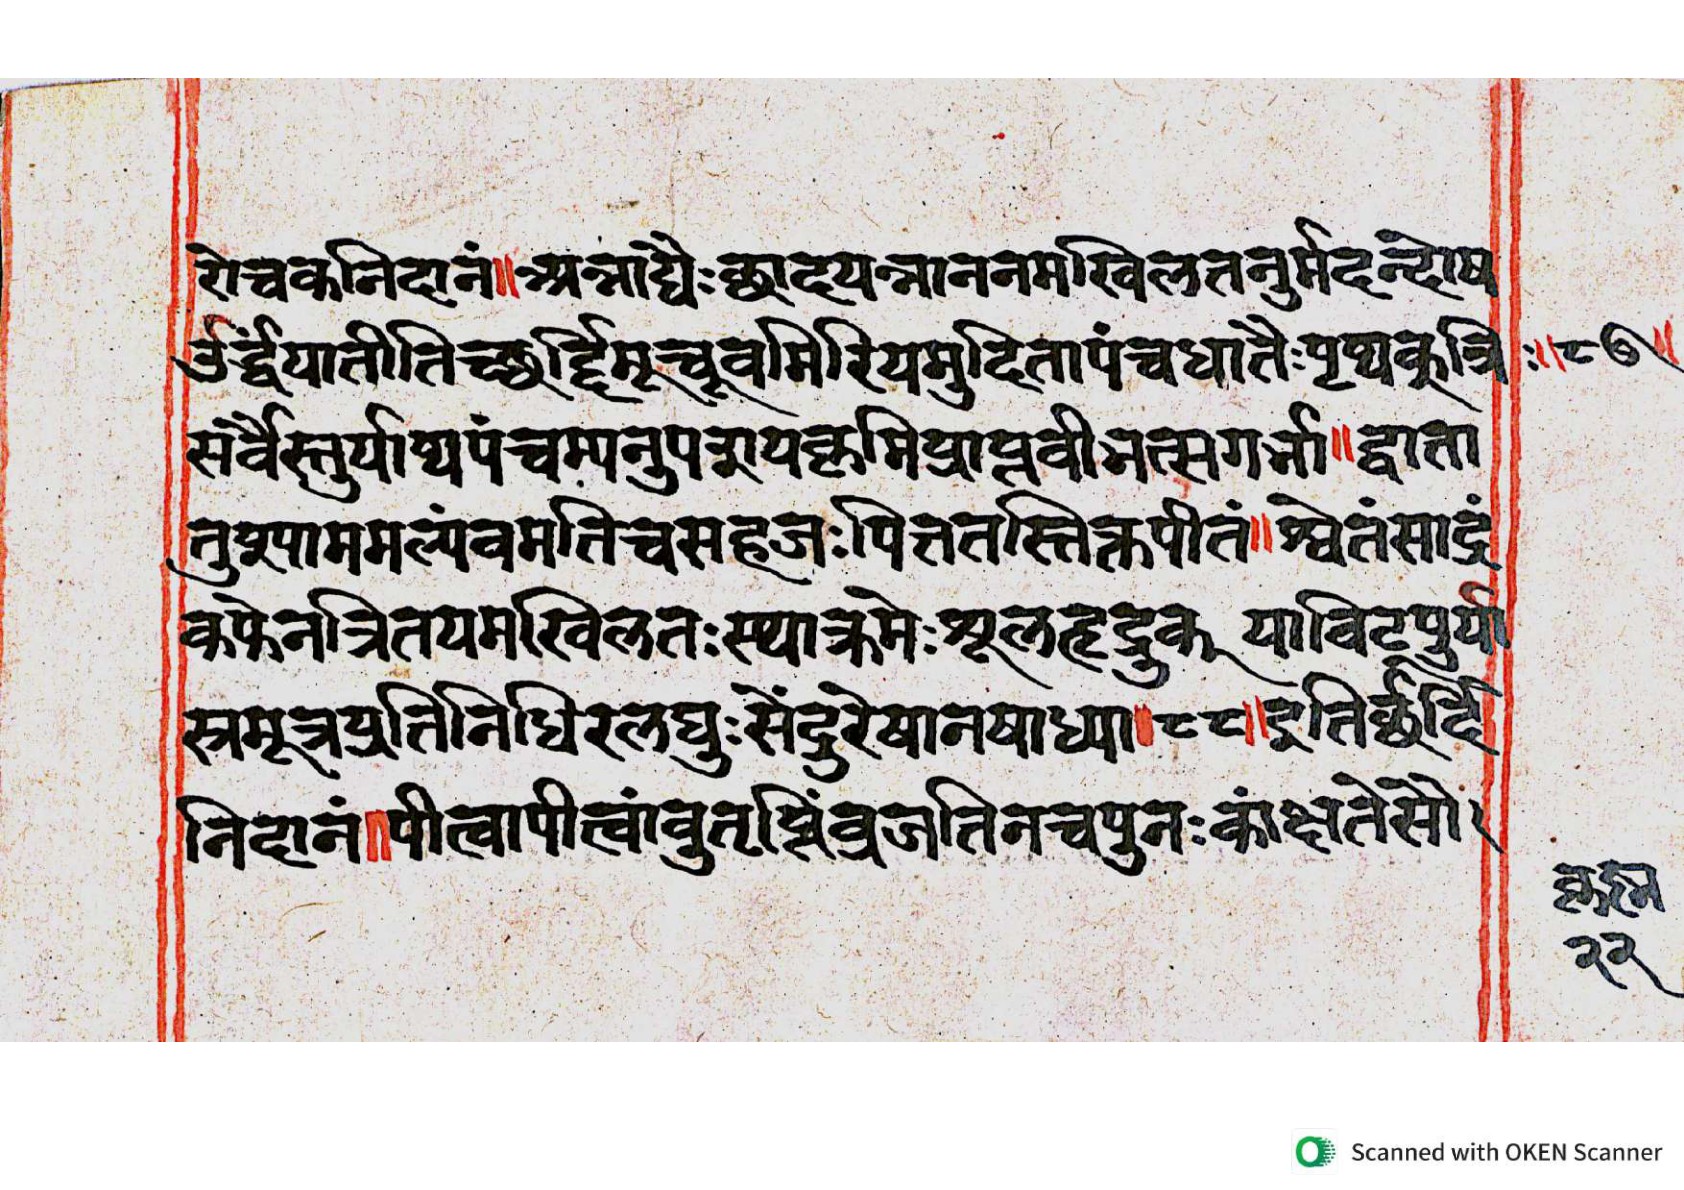 रोचकनिदानं॥अन्नाद्यैःछादयन्नाननमखिलतनुर्मदन्दोष
ऊर्द्ध्वंयातीतिच्छर्द्दिमृचूवमिरियमुदितापंचधातैःपृथक्त्रि:॥८७॥
सर्वैस्तुर्याथपंचम्यनुपशयकृमिप्राप्नवीभत्सगर्भा॥द्वाता
नुष्णपाममल्यंवमतिचसहजःपित्ततस्तिक्तपीतं॥श्वेतंसाद्रं
कफेनत्रितयमखिलतःस्थाक्रमेःशूलहृद्रुक् याविटपुर्या
स्रमूत्रप्रतिनिधिरलघुःसेंदुरेषानषाध्या॥८८॥इतिर्छर्दि
निदानं॥पीत्वापीत्वांवुतृप्तिंव्रजतिनचपुनःकांक्षतेसौ
२२
Scanned with OKEN Scanner